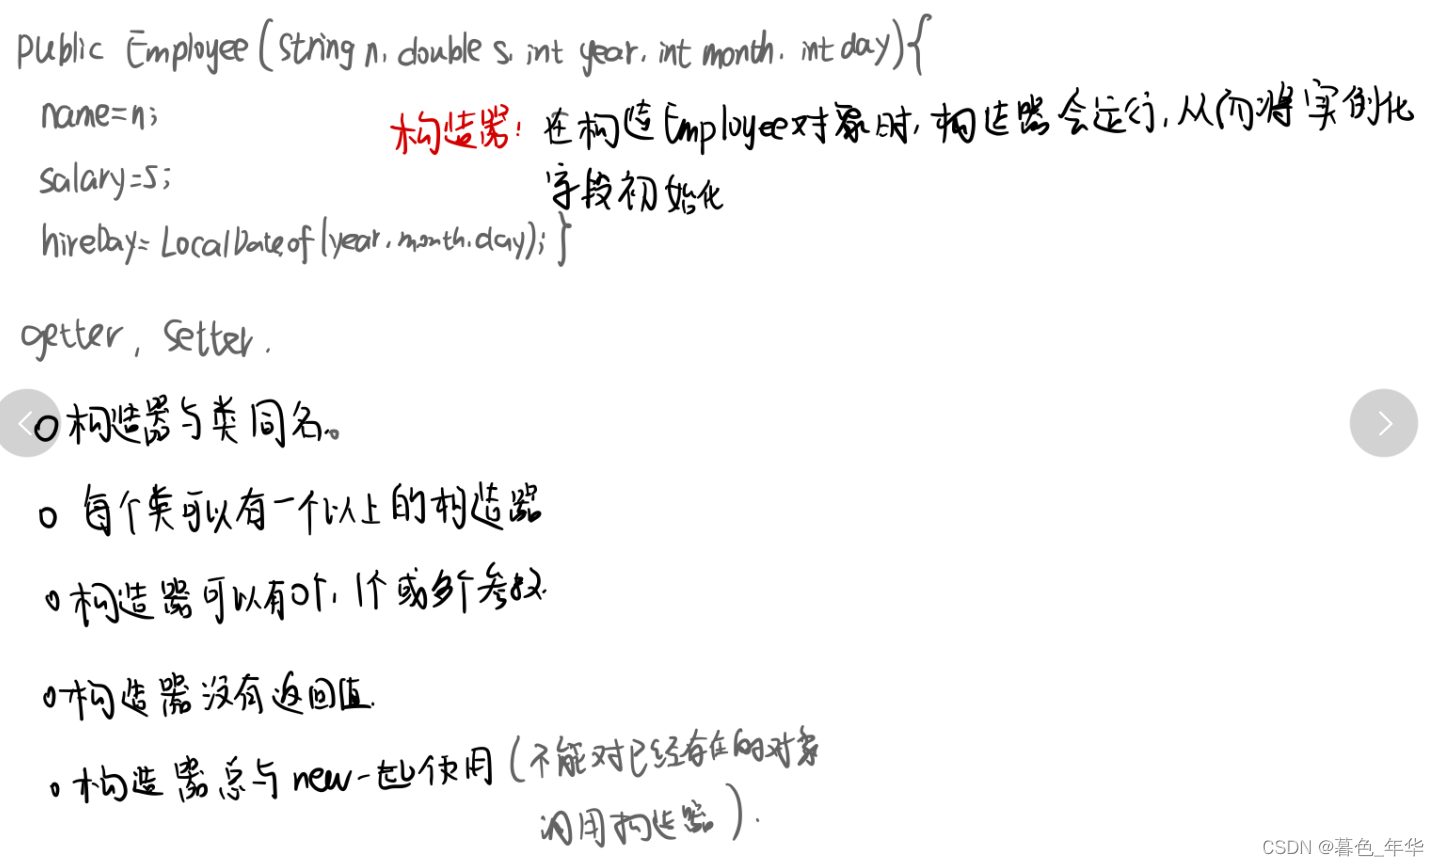 public Employee(String n, double s, int year, int month, int day){
name=n;
构造器: 在构造Employee对象时, 构造器会运行, 从而将实例化
salary=s;
字段初始化
hireDay=LocalDate.of(year,month,day);}
getter, setter.
构造器与类同名。
每个类可以有一个以上的构造器
构造器可以有0个, 1个或多个参数.
构造器没有返回值.
构造器总与new一起使用(不能对已经存在的对象
调用构造器).
CSDN @暮色_年华